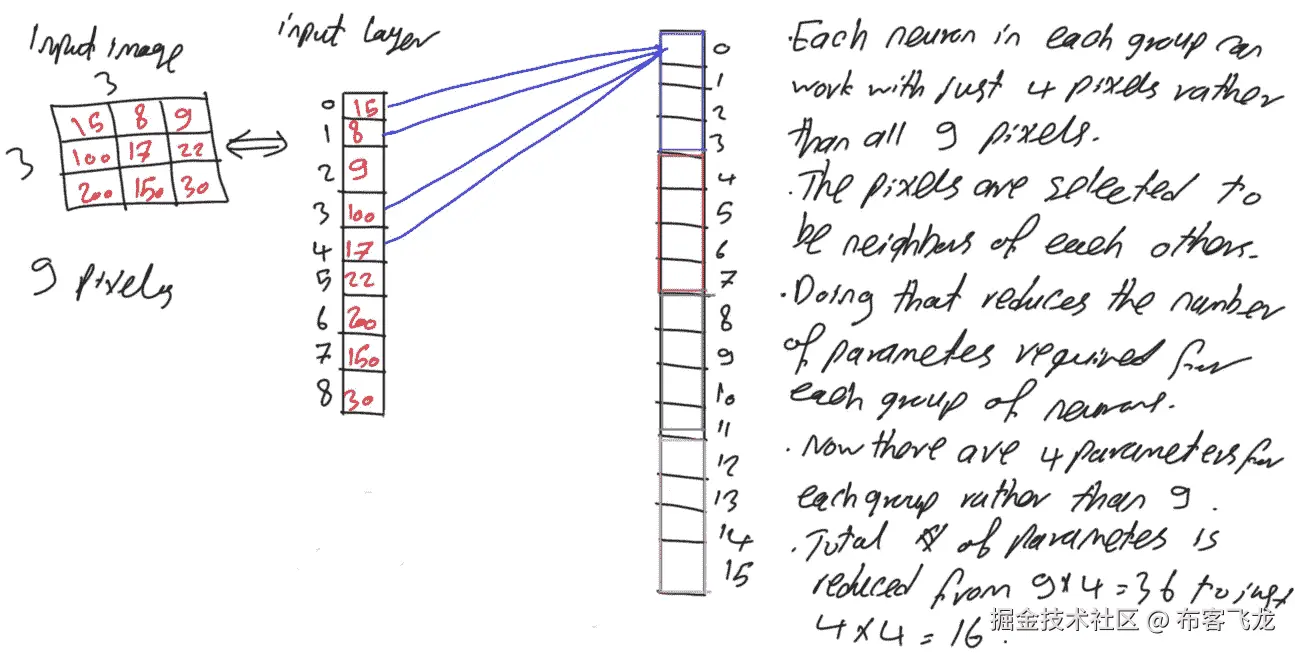 Input image
3
3
15 8 9
100 17 22
200 150 30
9 pixels
input layer
0 15
1 8
2 9
3 100
4 17
5 22
6 200
7 150
8 30
0
1
2
3
4
5
6
7
8
9
10
11
12
13
14
15
· Each neuron in each group can
work with just 4 pixels rather
than all 9 pixels.
· The pixels are selected to
be neighbors of each others.
· Doing that reduces the number
of parametes required for
each group of neurons.
· Now there are 4 parameters for
each group rather than 9.
· Total # of parametes is
reduced from 9*4=36 to just
4*4=16.
掘金技术社区 @ 布客飞龙